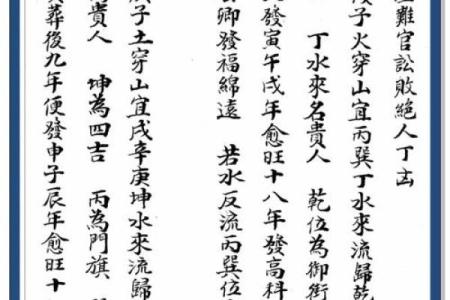 難官訟敗絕人丁
子火穿山宜丙巽丁水來流歸乾
丁水來名貴人 乾位為御街
發寅午戌年愈旺十八年發高科
卿發福綿遠 若水反流丙巽位
子土穿山宜戌辛庚坤水來流歸
貴人 坤為四吉 丙為門旗
葬後九年便發申子辰年愈旺十